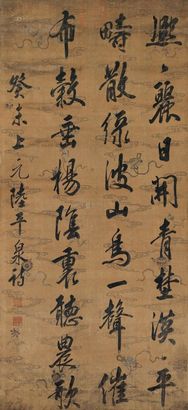 熙〻麗日開青埜漠〻平
疇散綠波山鳥一聲催
布穀垂楊陰裏聽農歌
癸未上元陸平泉詩